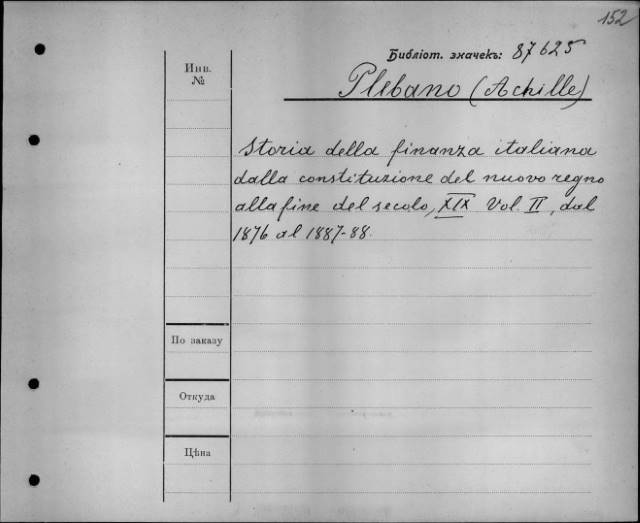 152
Библіот. значекъ: 87625
Инв.
№
Plebano (Achille)
Storia della finanza italiana
dalla constituzione del nuovo regno
alla fine del secolo, XIX Vol. II, dal
1876 al 1887-88.
По заказу
Откуда
Цѣна